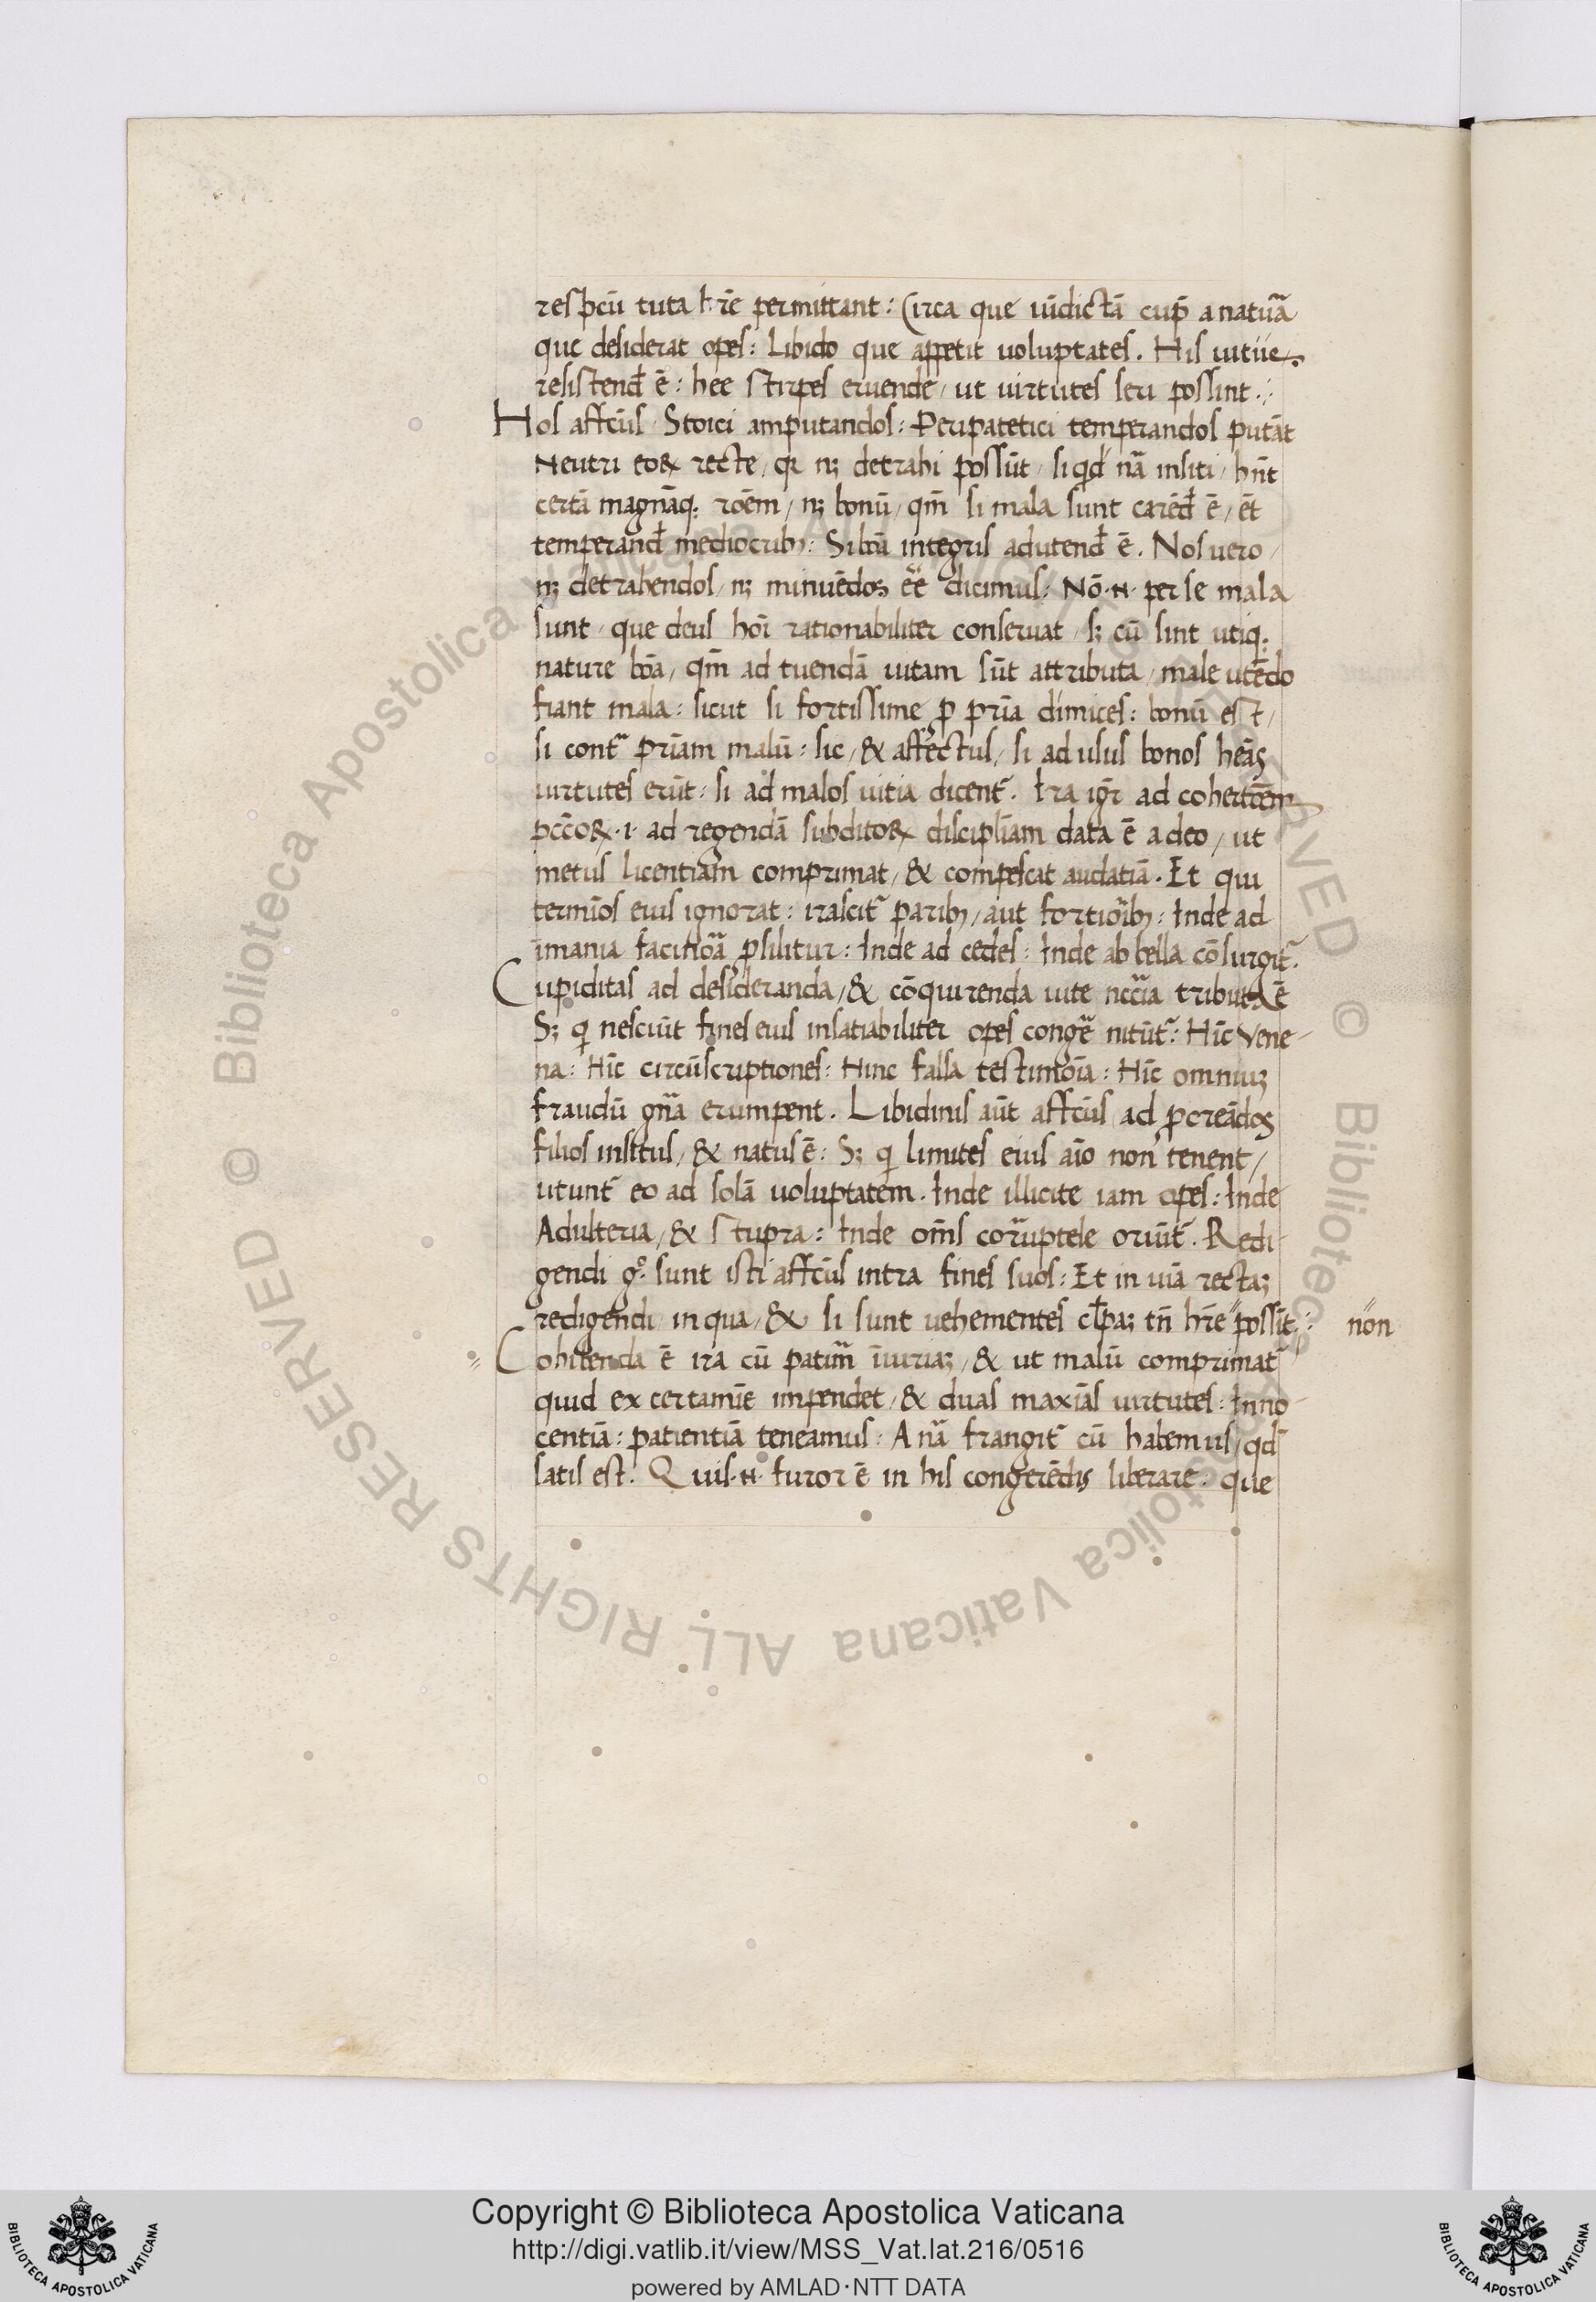 respcū tuta hr̄e permittant: Circa que uīdictā cup̄ a natuā
que desiderat opes: Libido que appetit uoluptates. His
resistend̄ ē: hee stirpes eruende / ut uirtutes seri possint.
Hos affcūs Stoici amputandos: Peripatetici temperandos putāt
Neutri eoꝝ recte / qr nꝫ detrahi possūt / si qd nā insiti / hn̄t
certā magnāqꝫ rōem / nꝫ bonū / qm̄ si mala sunt carēd̄ ē / ēt
temperand̄ mediocribꝫ: Si bōa integris adutend̄ ē. Nos uero
nꝫ detrahendos / nꝫ minuēdos ēē dicimus: Nō .n. per se mala
sunt / que deus hoī rationabiliter conseruat / sꝫ cū sint utiqꝫ
nature bōa / qm̄ ad tuendā uitam sūt attributa / male utēdo
fiant mala: sicut si fortissime ꝓ pr̄ia dimices: bonū est /
si contᷓ pr̄iam malū: sic / & affectus / si ad usus bonos heās
uirtutes erūt: si ad malos uitia dicent᷑. Ira igr̄ ad cohertcēm
pccōꝝ .i. ad regendā subditoꝝ disciplīam data ē a deo / ut
metus licentiam comprimat / & compescat audatiā. Et qui
termīos eius ignorat: irascit᷑ paribꝫ / aut fortiōibꝫ: Inde ad
īmania facinōa ꝓsilitur: Inde ad cedes: Inde ab bella cōsurgit᷑.
Cupiditas ad desideranda / & cōquirenda uite nccīa tributa ē
Sꝫ qi nesciūt fines eius insatiabiliter opes congeᷓ nitūt᷑: Hīc Vene-
na: Hīc circūscriptiones: Hinc falsa testimōia: Hīc omniuꝫ
fraudū gn̄a erumpent. Libidinis aūt affcūs ad ꝓcreādos
filios insitus / & natus ē: Sꝫ qi limites eius aīo non tenent /
utunt᷑ eo ad solā uoluptatem. Inde illicite iam opes: Inde
Adulteria / & stupra: Inde om̄s coruptele oriūt᷑. Redi-
gendi gº. sunt isti affcūs intra fines suos: Et in uiā rectaꝫ
redigendi in qua / & si sunt uehementes cl̄paꝫ tn̄ hr̄e " possīt:
" non
" Cohibenda ē ira cū patim̄ īiuriaꝫ / & ut malū comprimat᷑
quid ex certamīe impendet / & duas maxīas uirtutes: Inno-
centiā: patientiā teneamus: A nā frangit᷑ cū habemus / qd̄
satis est. Quis .n. furor ē in his congerēdis liberare. que
Copyright © Biblioteca Apostolica Vaticana
http://digi.vatlib.it/view/MSS_Vat.lat.216/0516
powered by AMLAD·NTT DATA
BIBLIOTECA APOSTOLICA VATICANA
BIBLIOTECA APOSTOLICA VATICANA
© Biblioteca Apostolica Vaticana ALL RIGHTS RESERVED © Biblioteca Apostolica Vaticana ALL RIGHTS RESERVED